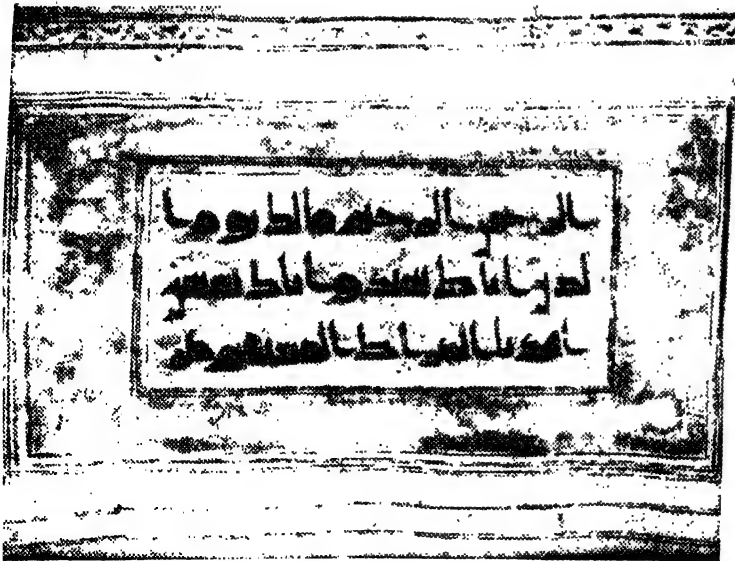 الرحمن الرحيم مالك يوم ا
لدين اياك نعبد واياك نستعين
اهدنا الصراط المستقيم صر